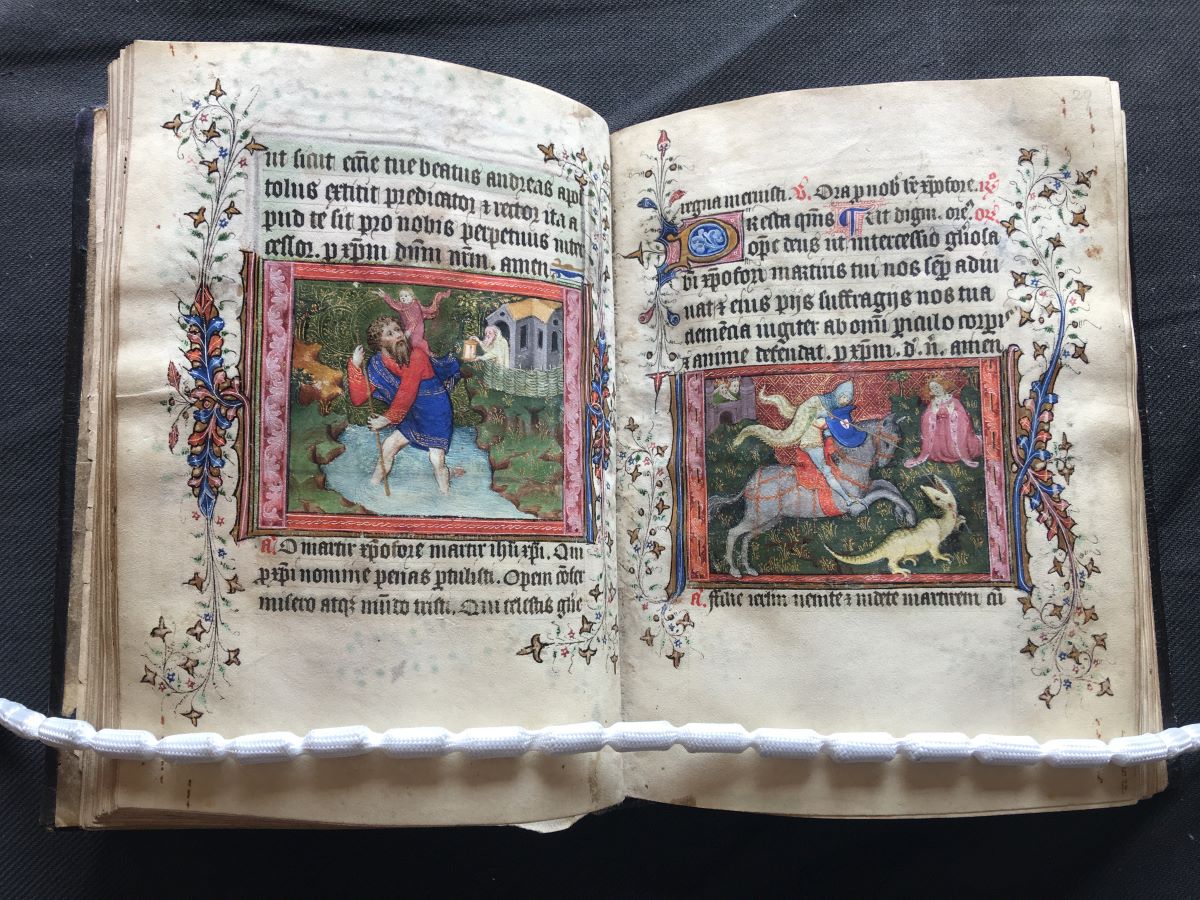 ut sicut ecc̄ie tue beatus andreas apo
tolus extitit predicator ⁊ rector ita a
pud te sit pro nobis perpetuus inter
cessor. p xp̄m dn̄m nr̄m. amen
a. O martir xp̄ofore martir ihū xp̄i. Qui
p xp̄i nomine penas ptulisti. Opem cōfer
misero atq; mūdo tristi. Qui celestis glīe
29
regna meruisti. v̄. Ora p nob̄ bt̄e xp̄ofore. R̄
Presta qm̄s ¶ Ut digni. ore. or̄o
ōpc deus ut intercessio gl̄iosa
bī xp̄ofori martiris tui nos semp̄ adiu
uat ⁊ eius pijs suffragijs nos tua
clemēcia iugiter ab omī piculo corpis
⁊ anime defendat. p xp̄m. d. n̄. amen
a. ffilie ierlm̄ uenite ⁊ uidete martirem cū